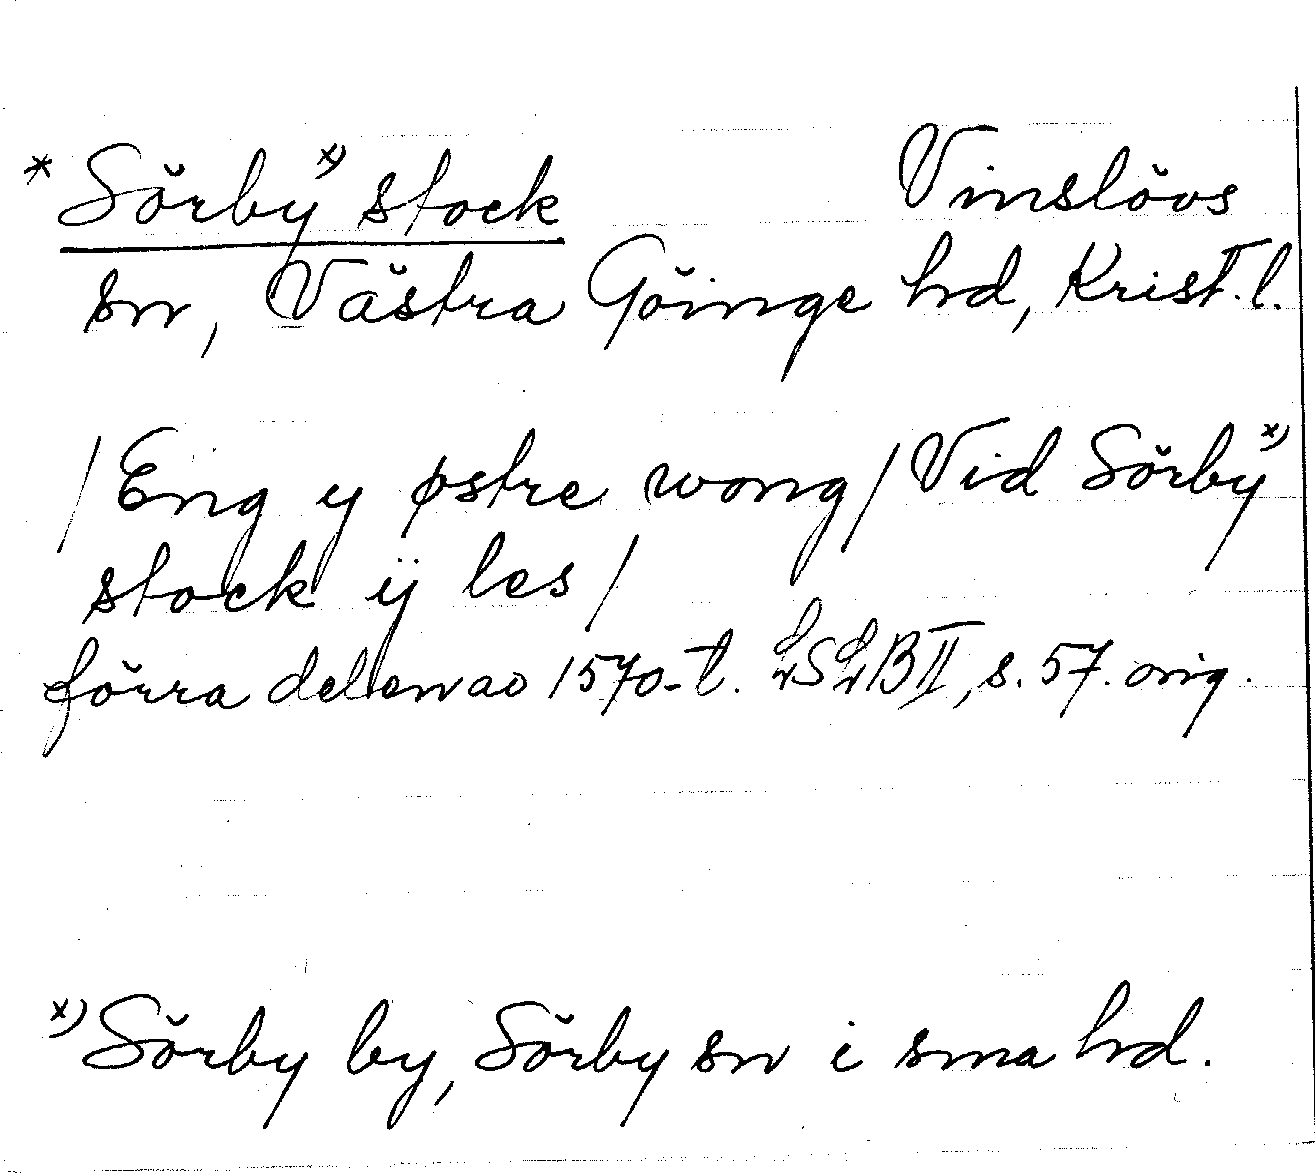 * Sörby x) stock Vinslövs
sn, Västra Göinge hd, Krist. l.
/ Eng y østre wong / Vid Sörby x)
stock ÿ les /
förra delen av 1570-t. LSLB II, s. 57. orig.
x) Sörby by, Sörby sn i sma hd.